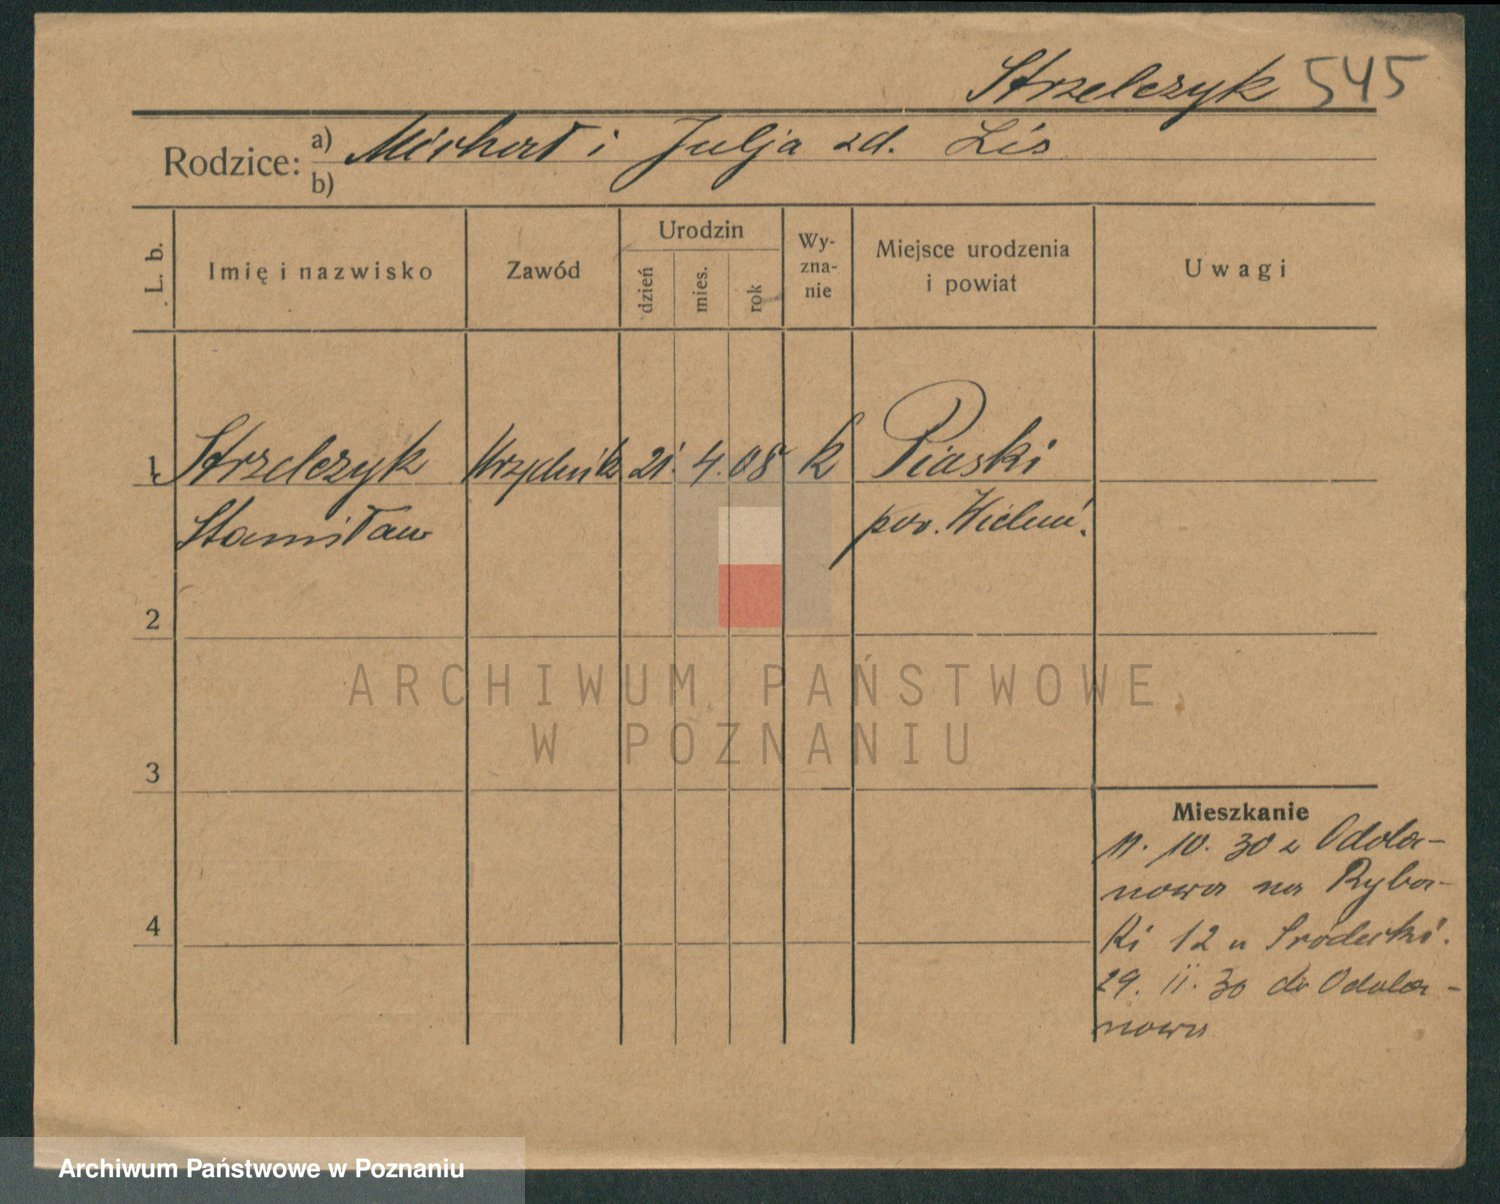 Strzelczyk 545
Rodzice: a) Michał i Julja zd. Lis
b)
L. b.
Imię i nazwisko
Zawód
Urodzin
dzień
mies.
rok
Wy-
zna-
nie
Miejsce urodzenia
i powiat
Uwagi
1 Strzelczyk Urzędnik 21. 4. 08 k Piaski
Stanisław pow. Wieluń.
2
3
4
Mieszkanie
11. 10. 30 z Odola-
nowa na Ryba-
ki 12 u Srodecki.
29. 11. 30 do Odola-
nowa
ARCHIWUM PAŃSTWOWE
W POZNANIU
Archiwum Państwowe w Poznaniu